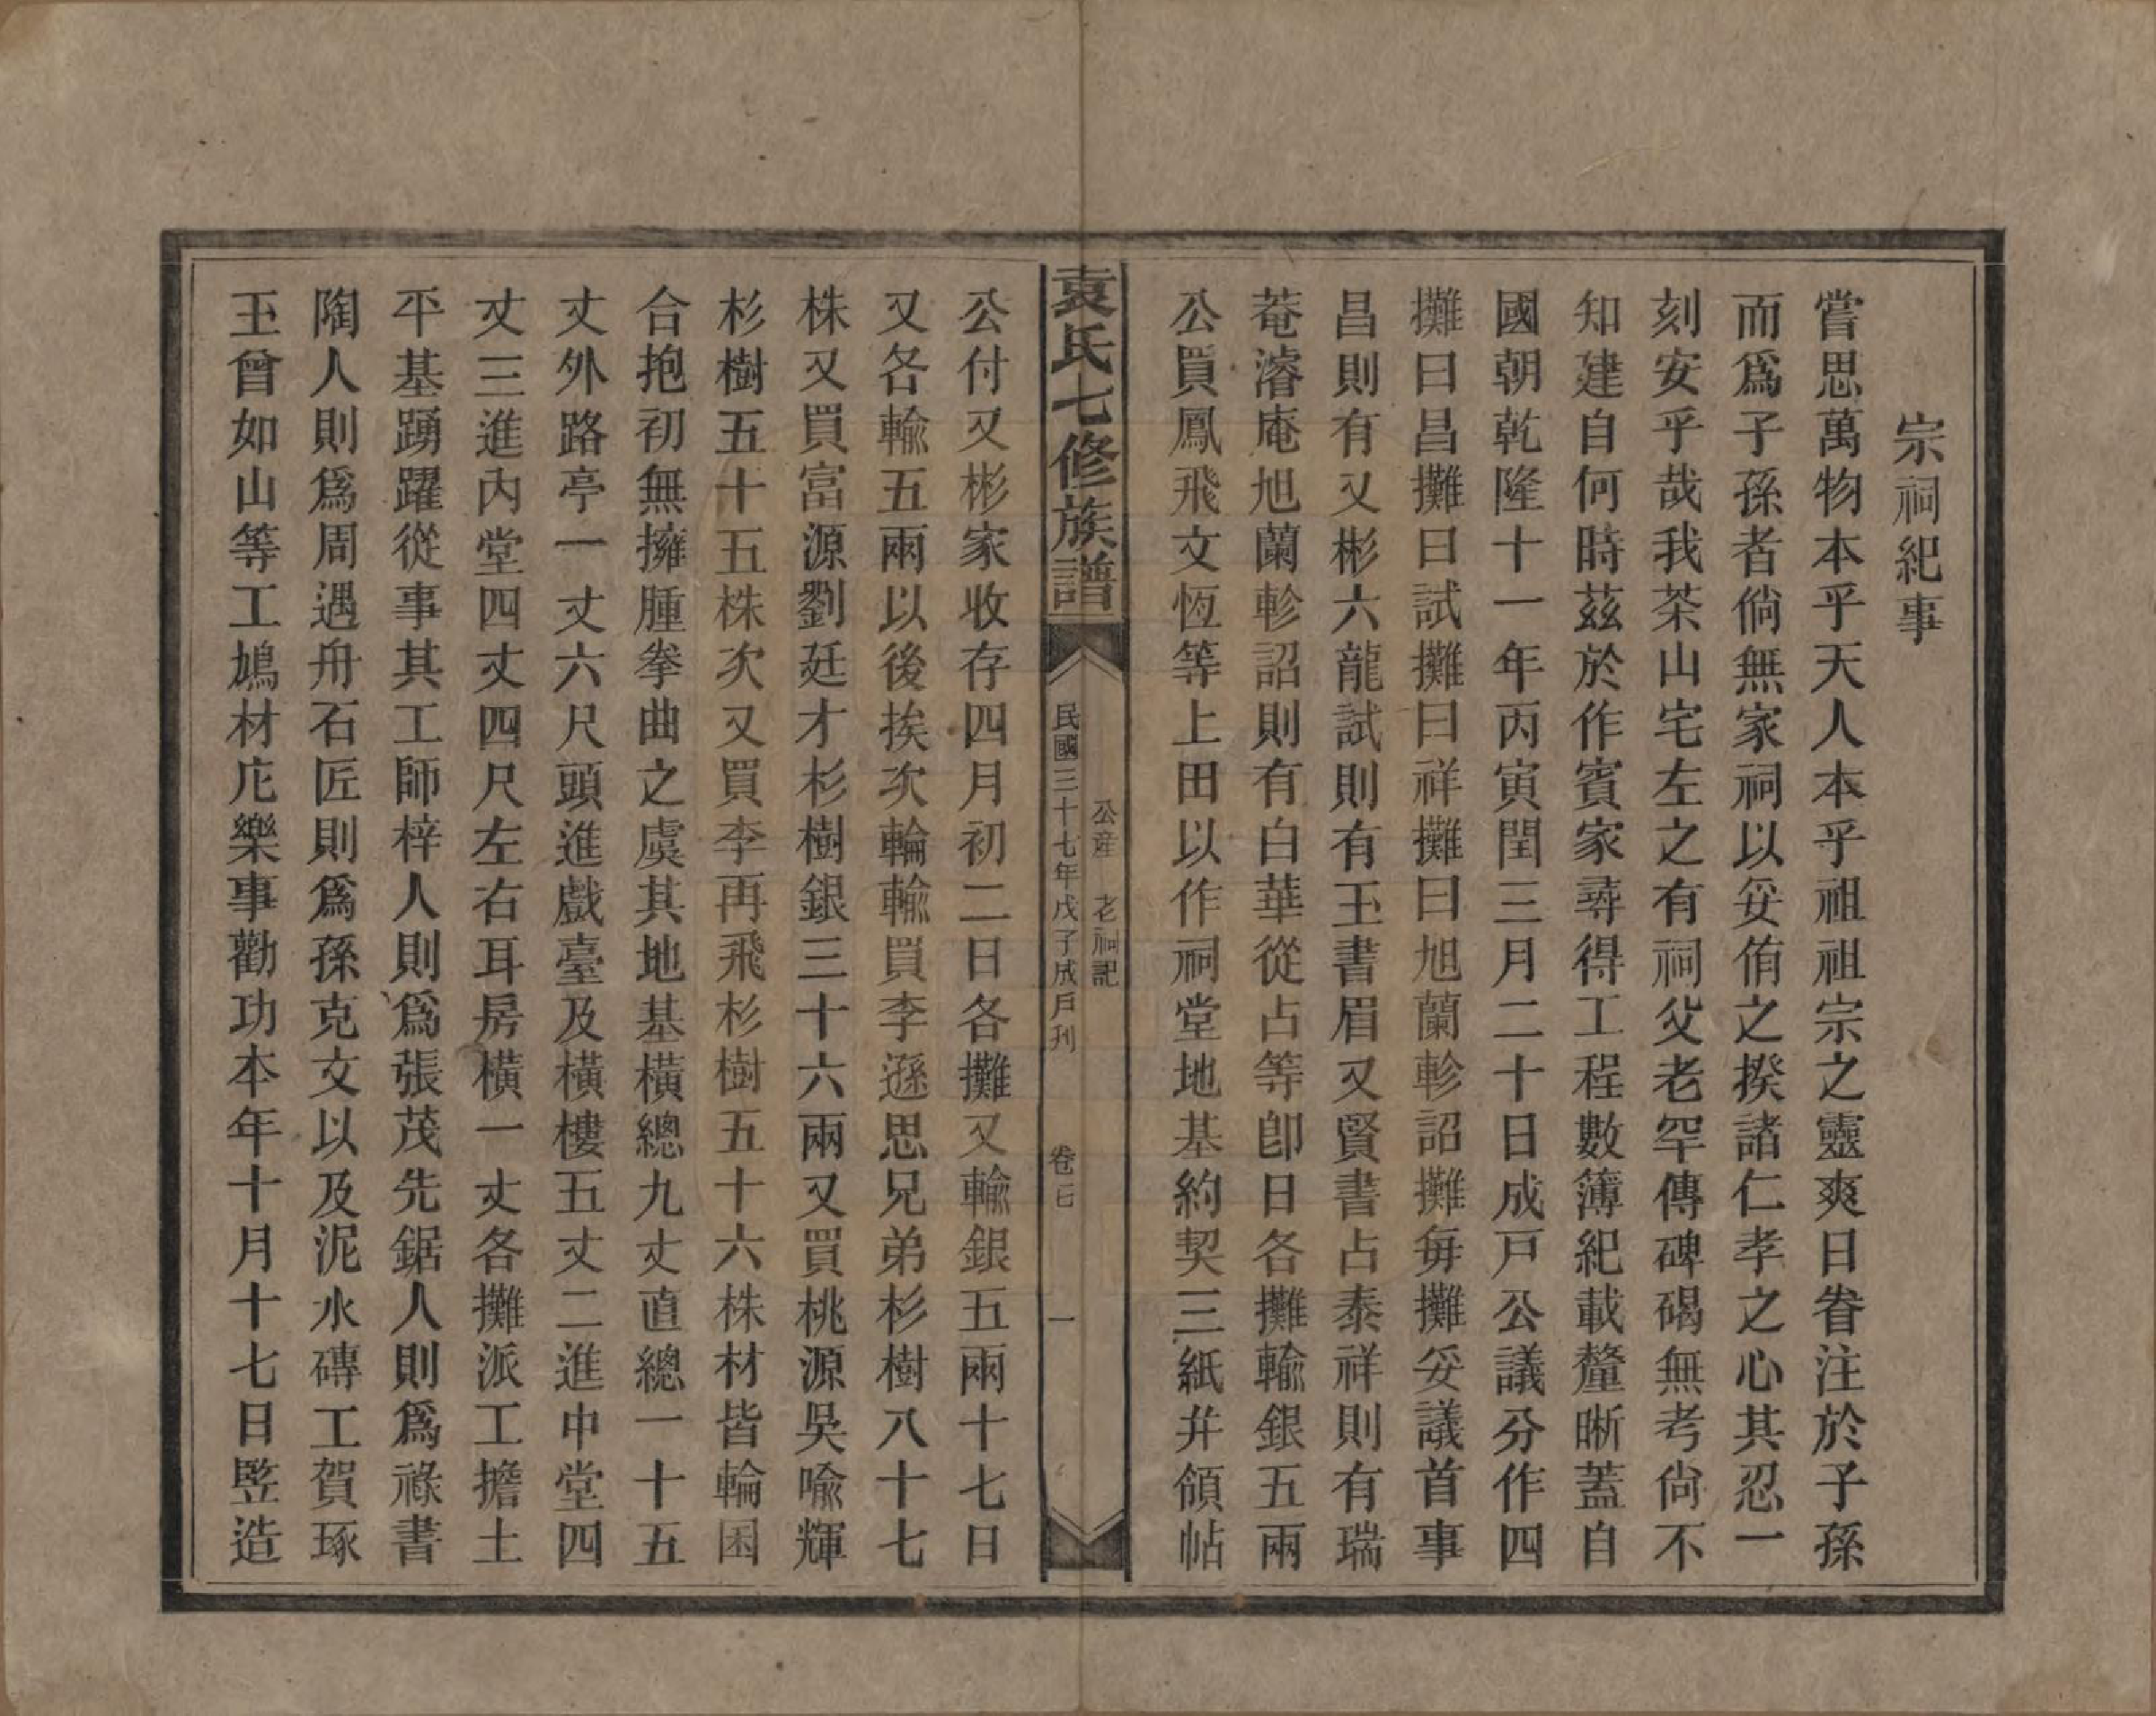 宗祠紀事
嘗思萬物本乎天人本乎祖祖宗之靈爽日眷注於子孫
而爲子孫者倘無家祠以妥侑之揆諸仁孝之心其忍一
刻安乎哉我茶山宅左之有祠父老罕傳碑碣無考尙不
知建自何時茲於作賓家尋得工程數簿紀載釐晰蓋自
國朝乾隆十一年丙寅閏三月二十日成戸公議分作四
攤曰昌攤曰試攤曰祥攤曰旭蘭軫詔攤每攤妥議首事
昌則有又彬六龍試則有玉書眉又賢書占泰祥則有瑞
菴濬庵旭蘭軫詔則有白華從占等卽日各攤輸銀五兩
公買鳳飛文恆等上田以作祠堂地基約契三紙幷領帖
袁氏七修族譜
公産　老祠記
民國三十七年戊子成戸刊　卷　一
公付又彬家收存四月初二日各攤又輸銀五兩十七日
又各輸五兩以後挨次輪輸買李遜思兄弟杉樹八十七
株又買富源劉廷才杉樹銀三十六兩又買桃源吳喩輝
杉樹五十五株次又買李再飛杉樹五十六株材皆輪囷
合抱初無擁腫拳曲之虞其地基橫總九丈直總一十五
丈外路亭一丈六尺頭進戲臺及橫樓五丈二進中堂四
丈三進內堂四丈四尺左右耳房橫一丈各攤派工擔土
平基踴躍從事其工師梓人則爲張茂先鋸人則爲祿書
陶人則爲周遇舟石匠則爲孫克文以及泥水磚工賀琢
玉曾如山等工鳩材庀樂事勸功本年十月十七日竪造